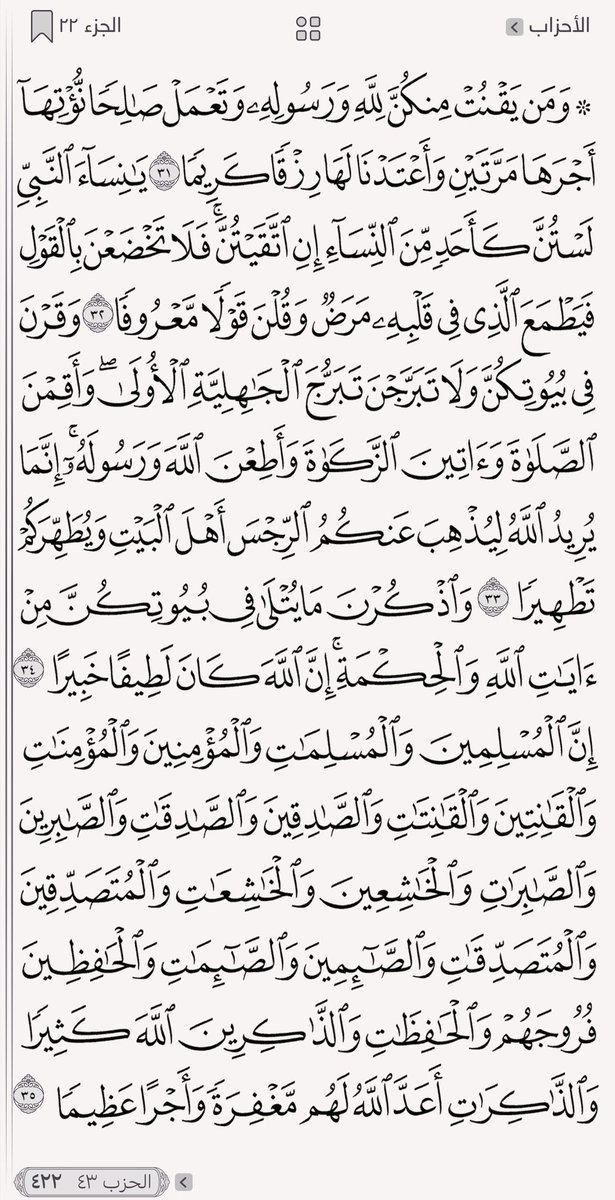 الأحزاب
الجزء ٢٢
۞ وَمَن يَقْنُتْ مِنكُنَّ لِلَّهِ وَرَسُولِهِۦ وَتَعْمَلْ صَٰلِحًا نُّؤْتِهَآ
أَجْرَهَا مَرَّتَيْنِ وَأَعْتَدْنَا لَهَا رِزْقًا كَرِيمًا ٣١ يَٰنِسَآءَ ٱلنَّبِيِّ
لَسْتُنَّ كَأَحَدٍ مِّنَ ٱلنِّسَآءِ إِنِ ٱتَّقَيْتُنَّۚ فَلَا تَخْضَعْنَ بِٱلْقَوْلِ
فَيَطْمَعَ ٱلَّذِي فِي قَلْبِهِۦ مَرَضٌ وَقُلْنَ قَوْلًا مَّعْرُوفًا ٣٢ وَقَرْنَ
فِي بُيُوتِكُنَّ وَلَا تَبَرَّجْنَ تَبَرُّجَ ٱلْجَٰهِلِيَّةِ ٱلْأُولَىٰۖ وَأَقِمْنَ
ٱلصَّلَوٰةَ وَءَاتِينَ ٱلزَّكَوٰةَ وَأَطِعْنَ ٱللَّهَ وَرَسُولَهُۥٓۚ إِنَّمَا
يُرِيدُ ٱللَّهُ لِيُذْهِبَ عَنكُمُ ٱلرِّجْسَ أَهْلَ ٱلْبَيْتِ وَيُطَهِّرَكُمْ
تَطْهِيرًا ٣٣ وَٱذْكُرْنَ مَا يُتْلَىٰ فِي بُيُوتِكُنَّ مِنْ
ءَايَٰتِ ٱللَّهِ وَٱلْحِكْمَةِۚ إِنَّ ٱللَّهَ كَانَ لَطِيفًا خَبِيرًا ٣٤
إِنَّ ٱلْمُسْلِمِينَ وَٱلْمُسْلِمَٰتِ وَٱلْمُؤْمِنِينَ وَٱلْمُؤْمِنَٰتِ
وَٱلْقَٰنِتِينَ وَٱلْقَٰنِتَٰتِ وَٱلصَّٰدِقِينَ وَٱلصَّٰدِقَٰتِ وَٱلصَّٰبِرِينَ
وَٱلصَّٰبِرَٰتِ وَٱلْخَٰشِعِينَ وَٱلْخَٰشِعَٰتِ وَٱلْمُتَصَدِّقِينَ
وَٱلْمُتَصَدِّقَٰتِ وَٱلصَّٰٓئِمِينَ وَٱلصَّٰٓئِمَٰتِ وَٱلْحَٰفِظِينَ
فُرُوجَهُمْ وَٱلْحَٰفِظَٰتِ وَٱلذَّٰكِرِينَ ٱللَّهَ كَثِيرًا
وَٱلذَّٰكِرَٰتِ أَعَدَّ ٱللَّهُ لَهُم مَّغْفِرَةً وَأَجْرًا عَظِيمًا ٣٥
الحزب ٤٣ ٤٢٢